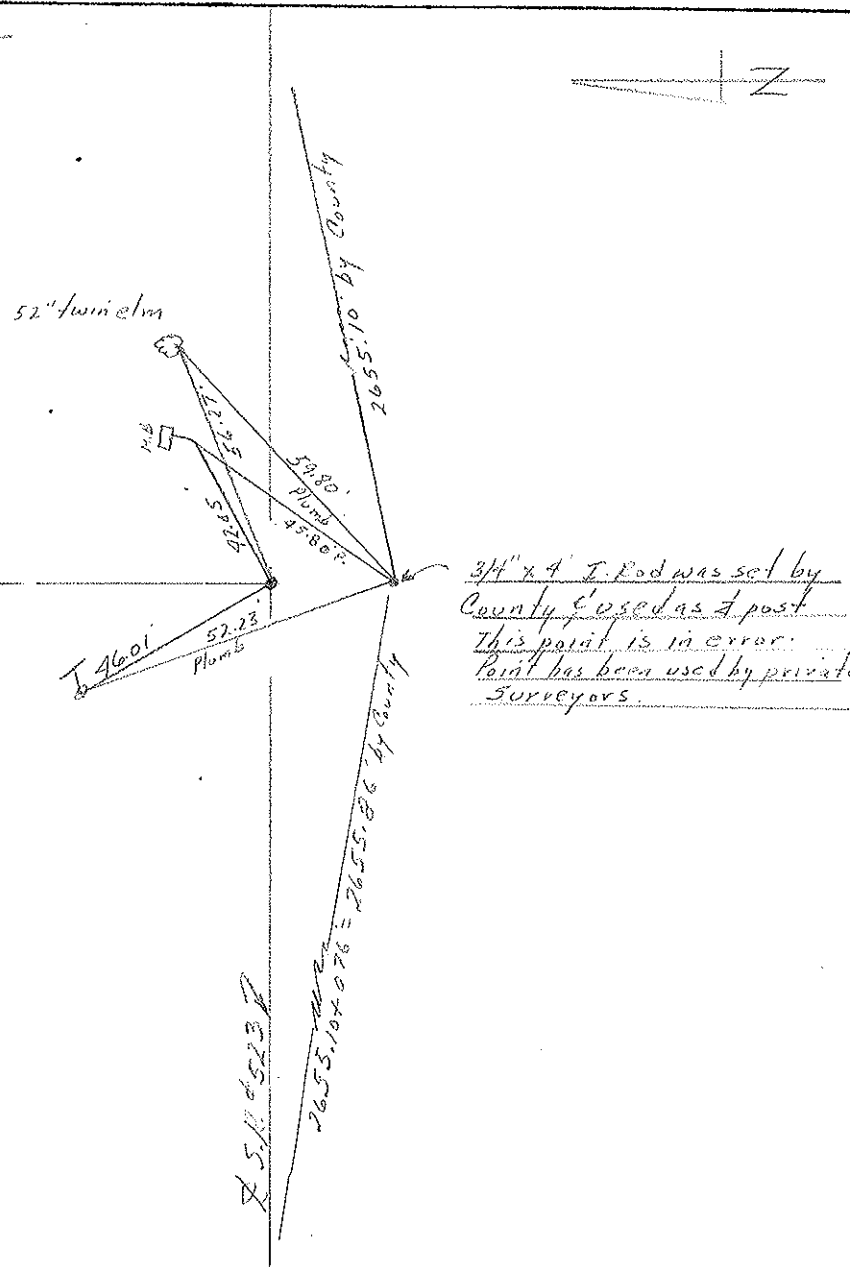 N
2655.10' by County
52" twin elm
M.B
56.27'
59.80'
Plumb
42.65
45.80' P.
46.01'
52.23'
Plumb
3/4" x 4' I. Rod was set by
County & used as post
This point is in error.
Point has been used by private
Surveyors.
2655.10+0.76 = 2655.86' by County
S.R. # 523